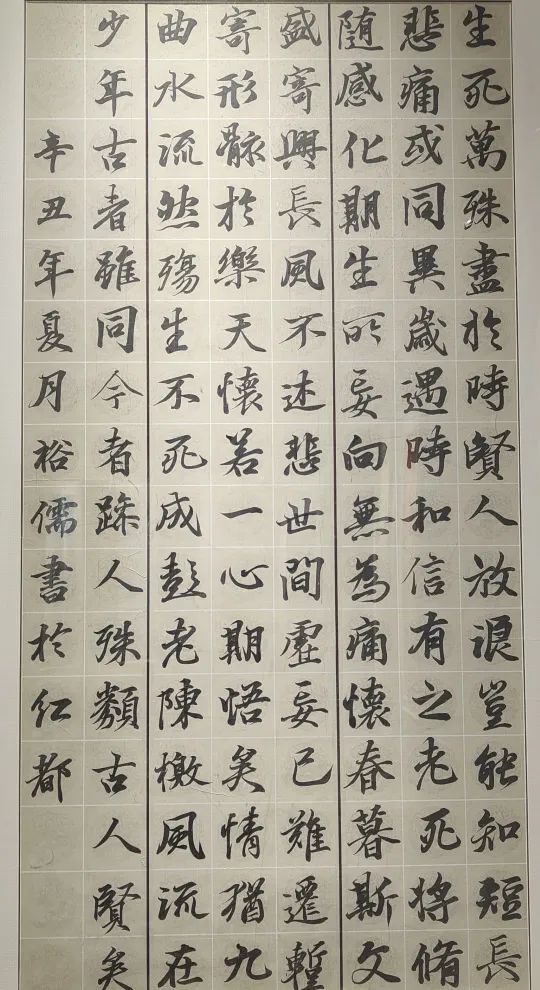 生死萬殊盡於時賢人放浪豈能知短長
悲痛或同異歲遇時和信有之老死將脩
隨感化期生所妄向無為痛懷春暮斯文
盛寄興長風不述悲世間虛妄已難遷暫
寄形骸於樂天懷若一心期悟矣情猶九
曲水流然殤生不死成彭老陳檄風流在
少年古者雖同今者跡人殊類古人賢矣
辛丑年夏月裕儒書於紅都